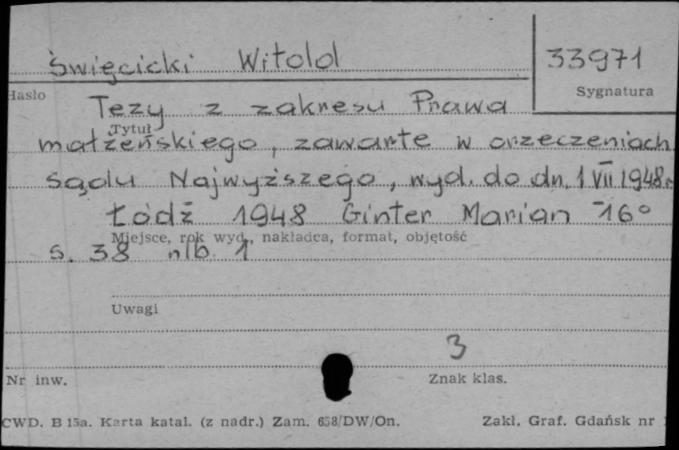 Święcicki Witold
33971
Hasło
Sygnatura
Tezy z zakresu Prawa
Tytuł
małżeńskiego, zawarte w orzeczeniach
Sądu Najwyższego, wyd. do dn. 1 VII 1948r
Łódź 1948 Ginter Marian 16°
Miejsce, rok wyd., nakładca, format, objętość
s. 38 nlb. 1
Uwagi
3
Nr inw.
Znak klas.
CWD. B 15a. Karta katal. (z nadr.) Zam. 658/DW/On.
Zakł. Graf. Gdańsk nr